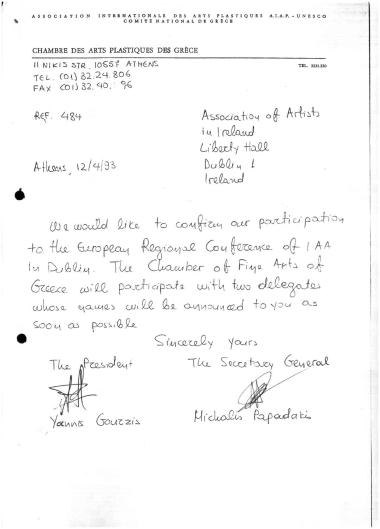 ASSOCIATION INTERNATIONALE DES ARTS PLASTIQUES A.I.A.P.-UNESCO
COMITÉ NATIONAL DE GRÈCE
CHAMBRE DES ARTS PLASTIQUES DES GRÈCE
11 NIKIS STR. 10557 ATHENS
TEL. (01) 32.24.806
FAX (01) 32.40. 96
TEL. 3231.230
REF. 484
Association of Artists
in Ireland
Liberty Hall
Dublin 1
Ireland
Athens, 12/4/93
We would like to confirm our participation
to the European Regional Conference of IAA
in Dublin. The Chamber of Fine Arts of
Greece will participate with two delegates
whose names will be announced to you as
soon as possible
Sincerely yours
The President
The Secretary General
Yannis Gourzis
Michalis Papadakis